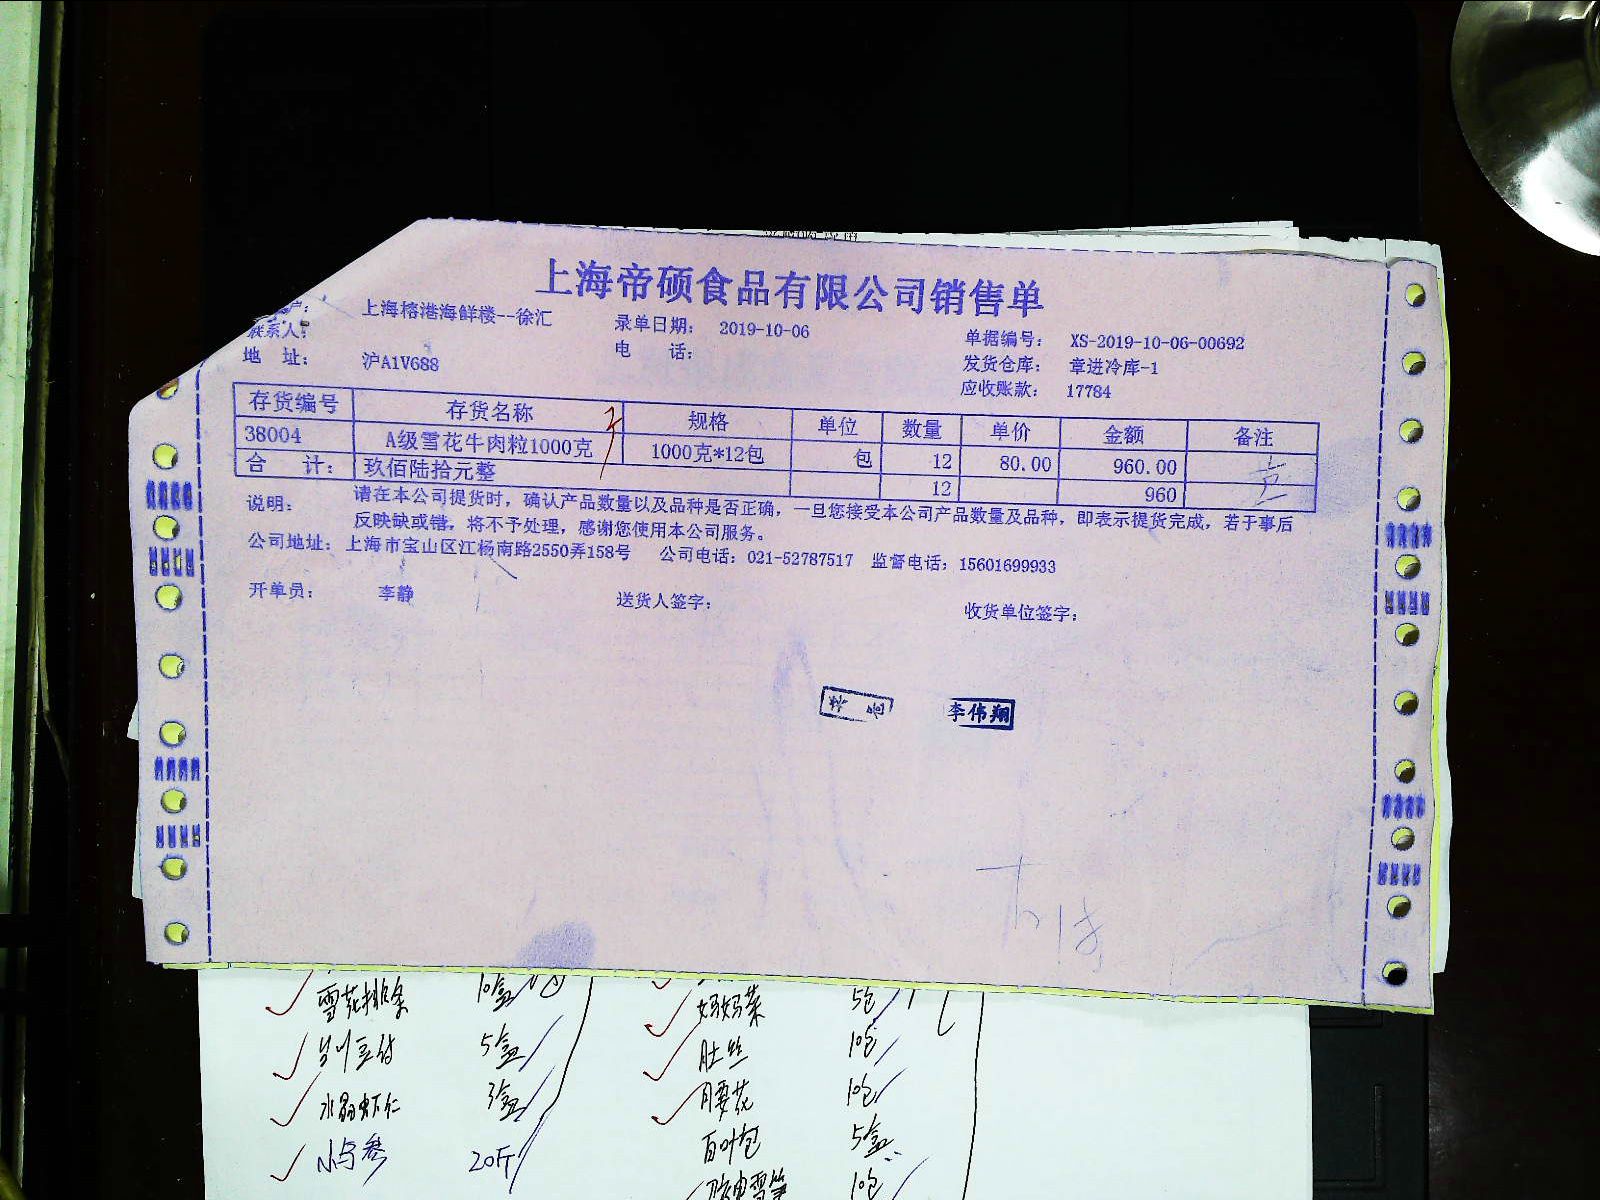 上海帝硕食品有限公司销售单
户： 上海榕港海鲜楼--徐汇 录单日期： 2019-10-06 单据编号： XS-2019-10-06-00692
联系人： 电 话： 发货仓库： 章进冷库-1
地 址： 沪A1V688 应收账款： 17784
存货编号 存货名称 规格 单位 数量 单价 金额 备注
38004 A级雪花牛肉粒1000克 1000克*12包 包 12 80.00 960.00
合 计： 玖佰陆拾元整 12 960
说明： 请在本公司提货时，确认产品数量以及品种是否正确，一旦您接受本公司产品数量及品种，即表示提货完成，若于事后
反映缺或错，将不予处理，感谢您使用本公司服务。
公司地址： 上海市宝山区江杨南路2550弄158号 公司电话：021-52787517 监督电话：15601699933
开单员： 李静 送货人签字： 收货单位签字：
李伟翔
雪花排条 10盒 妈妈菜 5包
5盒 肚丝 10包
水晶虾仁 3盒 腰花 10包
小乌参 20斤 百叶包 5盒
10包